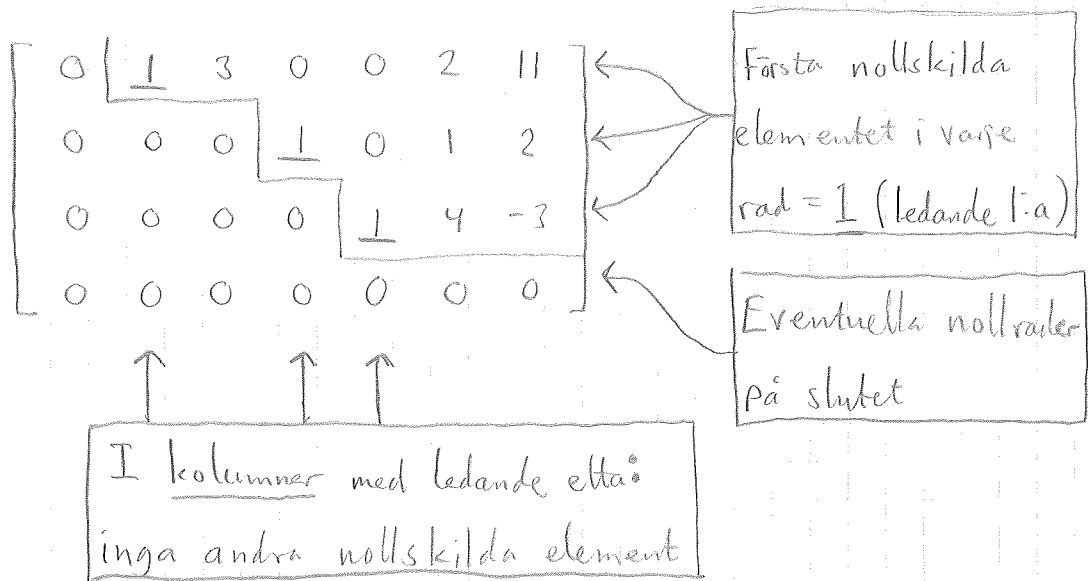 0 1 3 0 0 2 11
0 0 0 1 0 1 2
0 0 0 0 1 4 -3
0 0 0 0 0 0 0
Första nollskilda
elementet i varje
rad = 1 (ledande 1:a)
Eventuella nollrader
på slutet
I kolumner med ledande etta:
inga andra nollskilda element